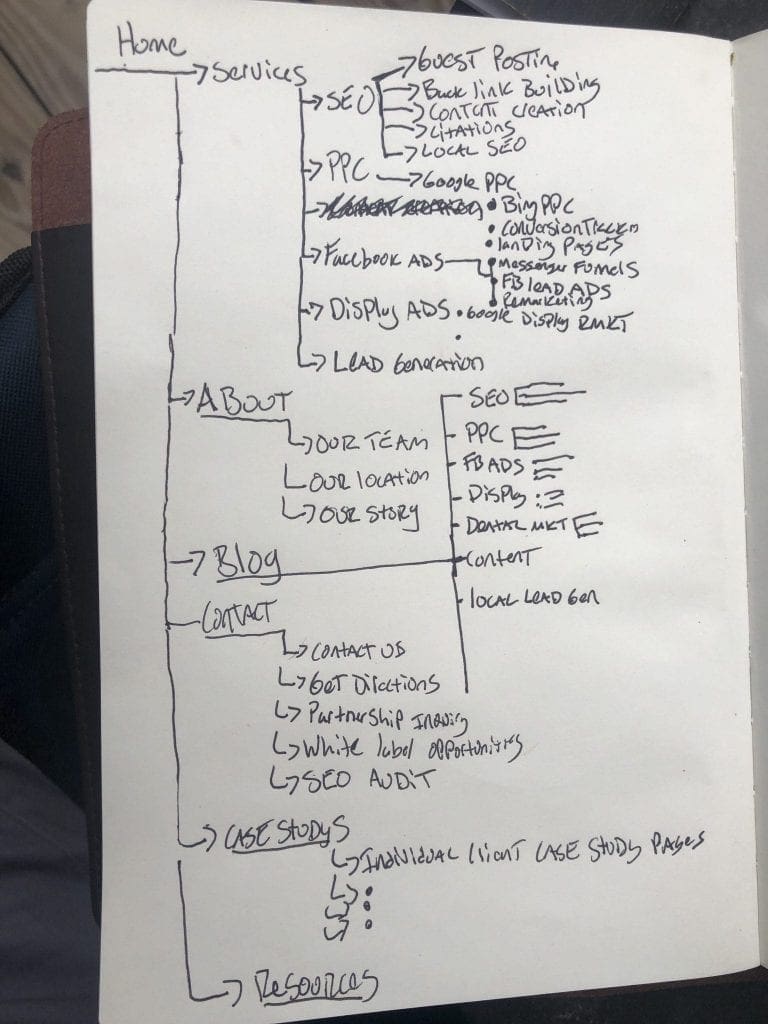 Home
Services
SEO
Guest Posting
Back link Building
Content Creation
Citations
Local SEO
PPC
Google PPC
Bing PPC
Conversion
Landing Pages
Facebook ADS
Messenger Funnels
FB Lead ADS
Remarketing
Display ADS
Google Display RMKT
Lead Generation
About
Our Team
Our Location
Our Story
Blog
SEO
PPC
FB ADS
Display
MKT
Content
Local Lead Gen
Contact
Contact Us
Get Directions
Partnership Inquiry
White label opportunities
SEO Audit
Case Studys
Individual Client Case Study Pages
Resources